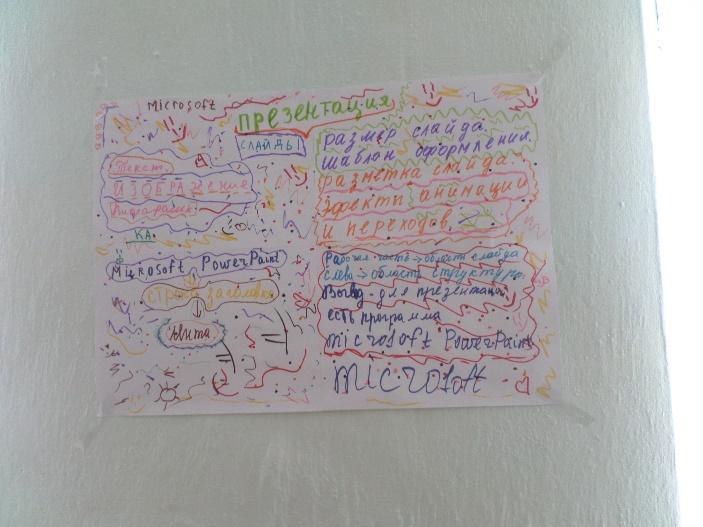 Microsoft
презентация
СЛАЙДЫ
Текст
ИЗОБРАЖЕНИЕ
КА
Microsoft PowerPaint
строка заголовка
размер слайда.
шаблон оформления.
разметка слайда
Эфекты анимации
и переходов
Рабочая часть → область слайда
слева → область структуры.
Вывод - для презентаций
есть программа
microsoft PowerPaint
microsoft